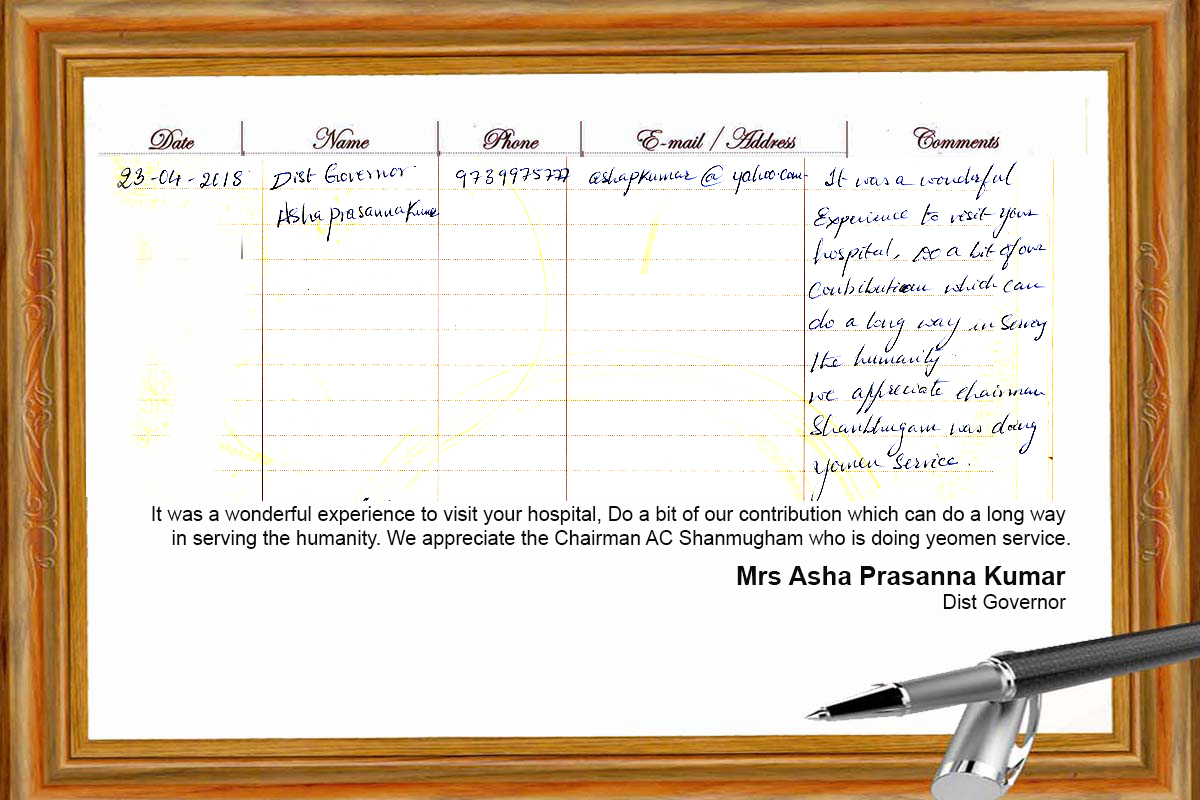 Date Name Phone E-mail / Address Comments
23-04-2018 Dist Governor 9739975777 ashapkumar@yahoo.com It was a wonderful
Asha Prasanna Kumar Experience to visit your
hospital, Do a bit of our
Contribution which can
do a long way in Serving
the humanity
we appreciate chairman
Shanbhugam was doing
yomen service.
It was a wonderful experience to visit your hospital, Do a bit of our contribution which can do a long way
in serving the humanity. We appreciate the Chairman AC Shanmugham who is doing yeomen service.
Mrs Asha Prasanna Kumar
Dist Governor